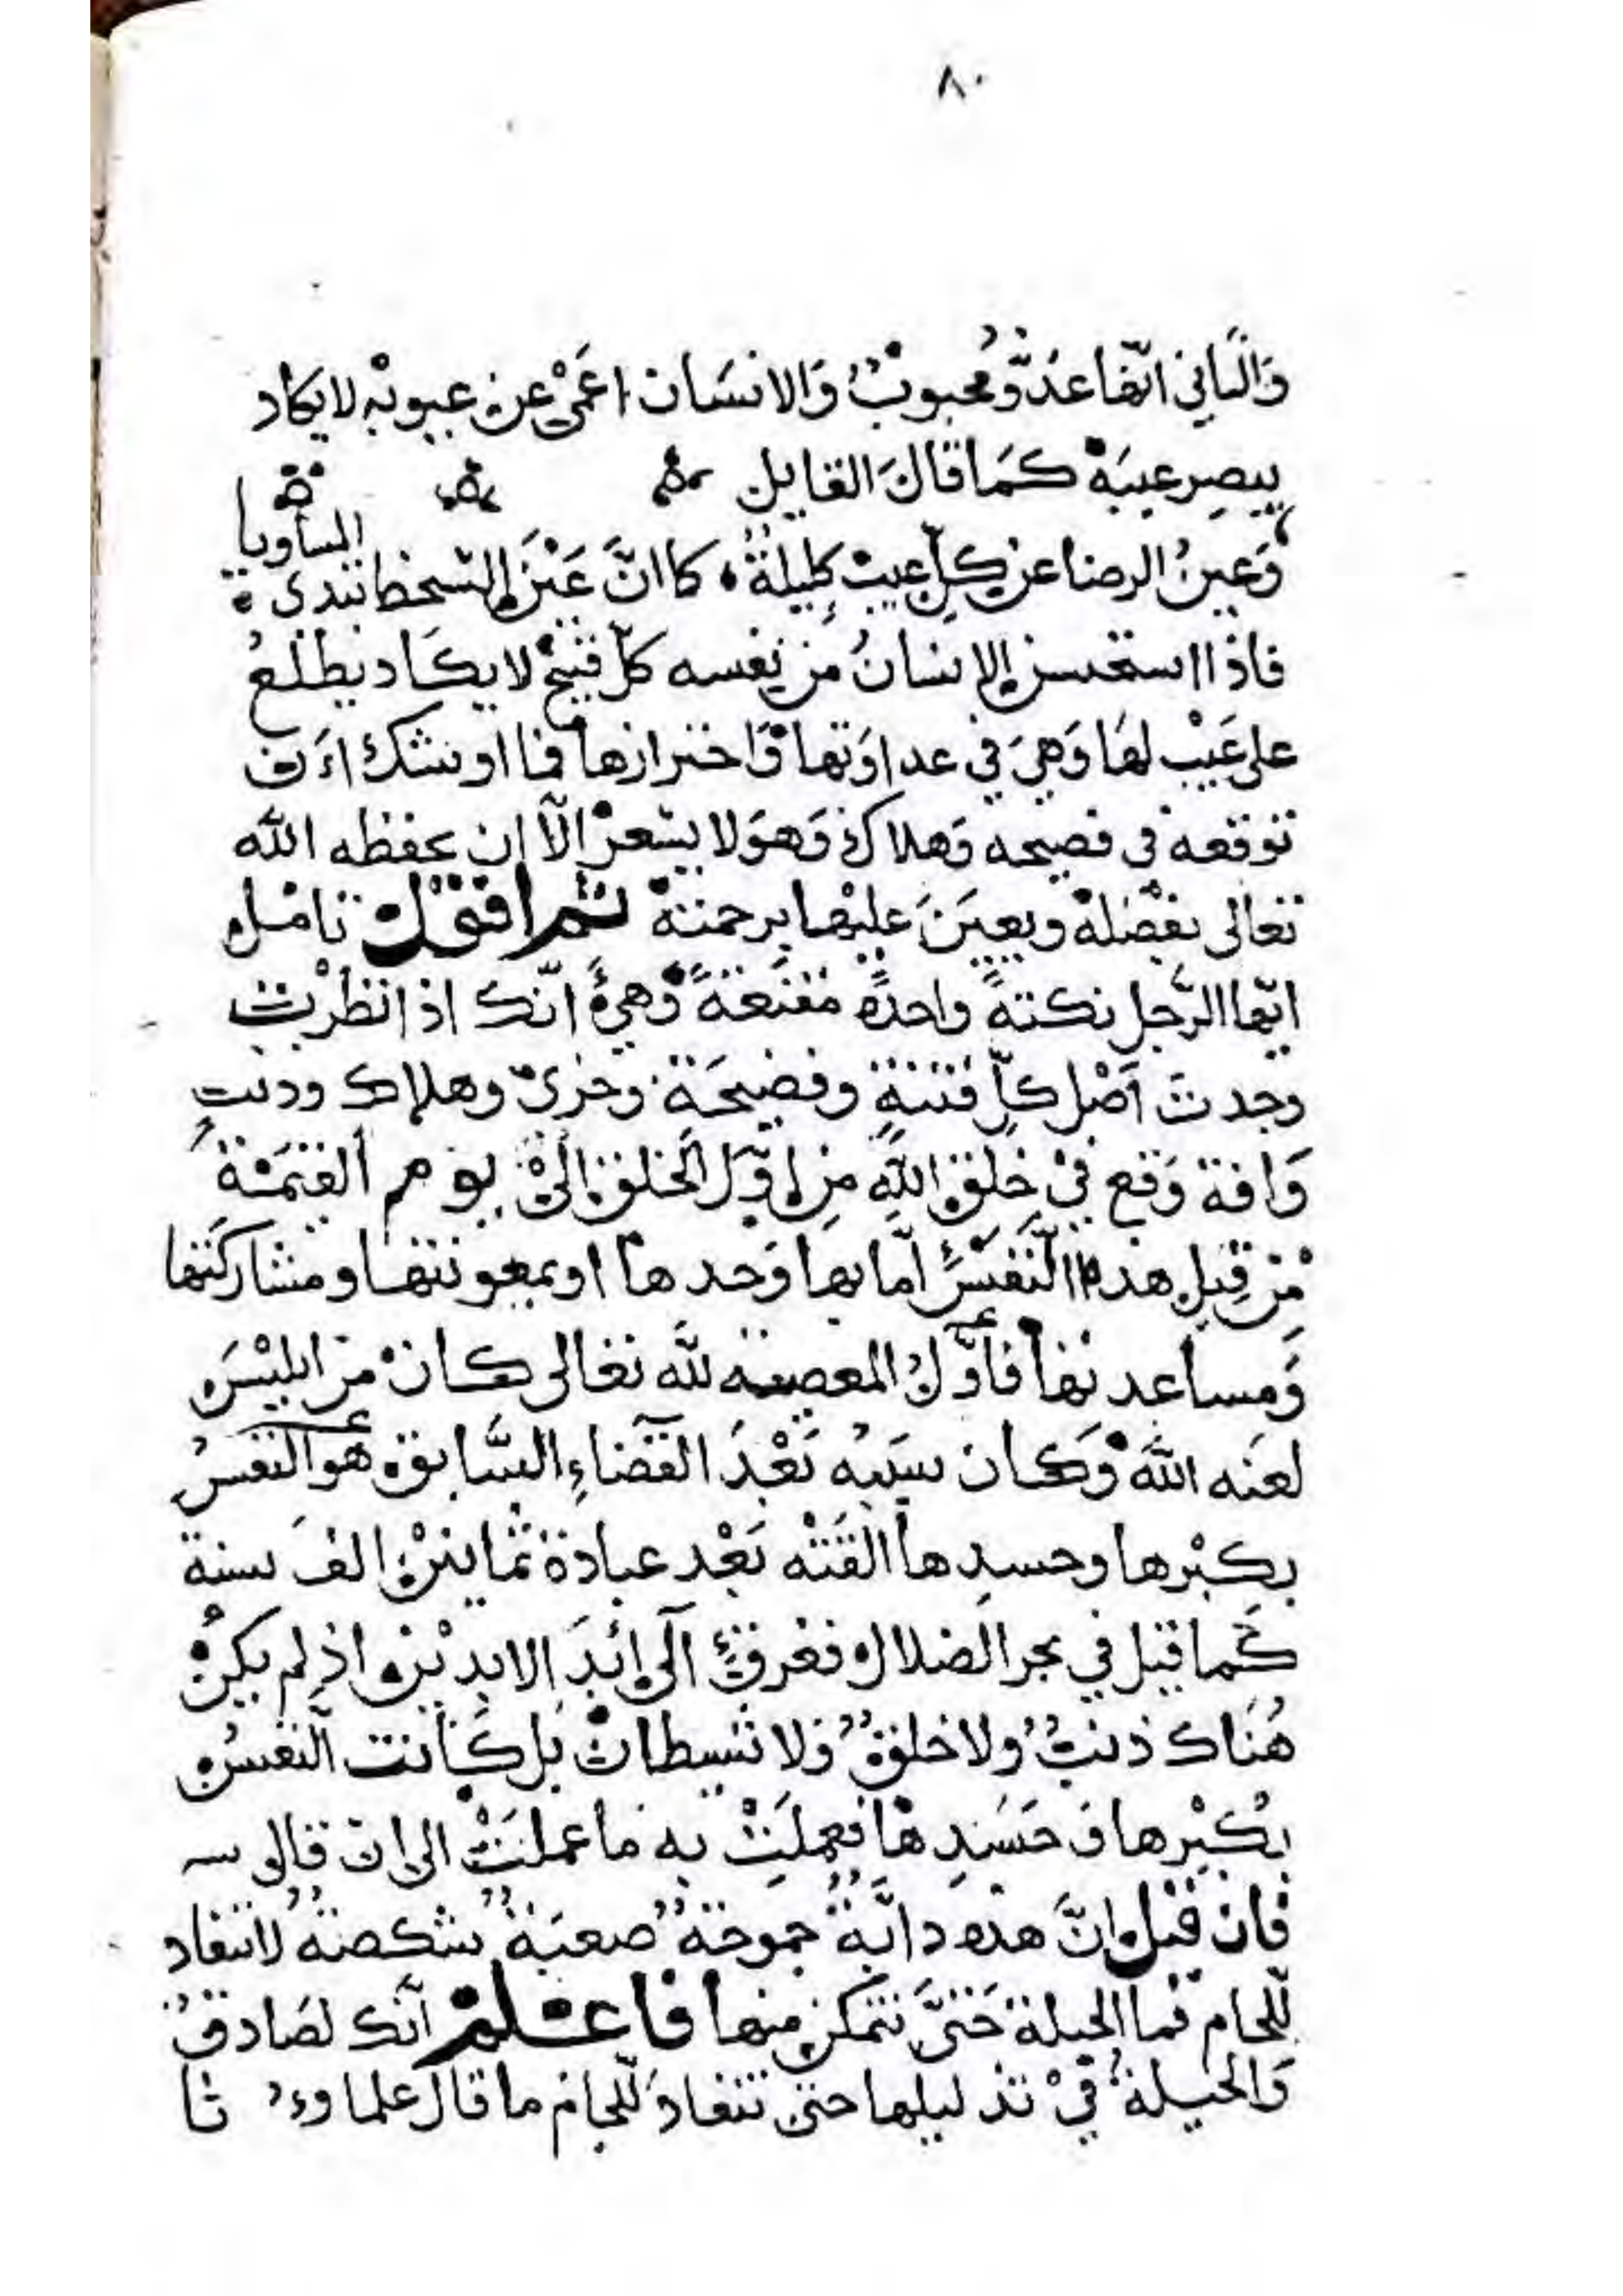 ٨٠
وَالثاني انّها عدُوّ محبوبٌ وَالانسَان اعَمْى عن عيوبه لايكاد
يبصِر عيبَهْ كمَا قال القايل
وَعينُ الرضا عن كلِّ عيبٍ كليلةٌ كما انَّ عَيْنَ السّخط تبدى المساويا
فاذا استحسن الإنسانُ من نفسه كلّ قبيحٍ لا يكاد يطلعُ
على عَيْب لهَا وَهيَ في عداوَتها وَاضرارها فما اوشك اَن
توقعه في فضيحه وَهلاكٍ وَهوَ لا يشعرْ الّا ان يحفظه الله
تعالى بفضله ويعينَ عليها برحمته ثم اقول تامل
ايّها الرّجل نكتةً واحدةً مقنعةً وَهيَ انّك اذا نظرْت
وجدتَ اَصْل كلّ فتنةٍ وفضيحَةٍ وخزىٍ وهلاك وذنبٍ
وَافة وَقع في خلق اللهِ من اوّل الخلق الى يوم القيمَة
من قِبل هذه النَّفسِ امّا بها وَحدها او بمعونتها ومشاركتها
وَمساعدتها فاوّلُ المعصيه لله تعالى كانْ من ابليسَ
لعنه اللّه وَكان سببُه بَعْدَ القضاءِ السّابق هوَ النفسُ
بكِبْرها وحسدِها القَتْه بَعْد عبادة ثمانينْ الفَ سنة
كما قيل في بحر الضلال فغرقَ الى ابَدَ الابدين اذ لم يكنْ
هُناك ذنبٌ ولا خلقٌ وَلا شيطانٌ بل كانت النفسُ
بِكبْرها وَ حَسَدِها فعملَتْ به ما عملتْ الى ان قال
فان قيل انّ هذه دابَّةٌ جموحةٌ صعبَةٌ شكصةٌ لا تنقاد
للّجام فما الحيلة حَتىَّ نتمكن منها فاعلمْ انّك لصَادقٌ
وَالحيلةُ في تذليلها حتى تنقادَ للّجام ما قال علماوءُنا